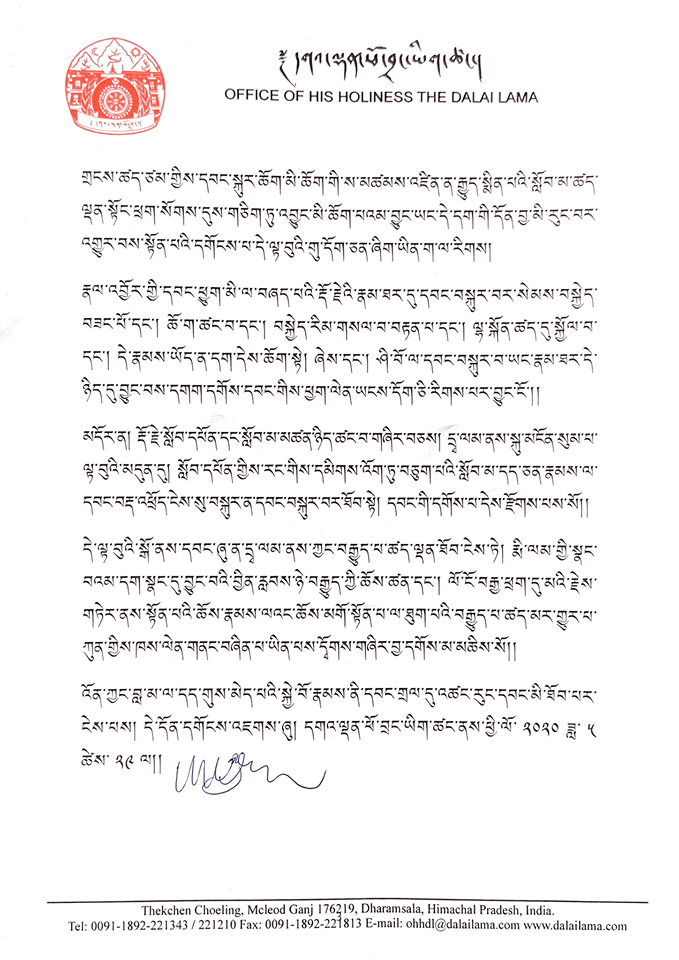 OFFICE OF HIS HOLINESS THE DALAI LAMA
གྲངས་ཚད་ཙམ་གྱིས་དབང་སྐུར་ཆོག་མི་ཆོག་གི་ས་མཚམས་འཛིན་ན་རྒྱུད་སྨིན་པའི་སློབ་མ་ཚད་
ལྡན་སྟོང་ཕྲག་སོགས་དུས་གཅིག་ཏུ་འབྱུང་མི་ཆོག་པའམ་བྱུང་ཡང་དེ་དག་གི་དོན་བྱ་མི་རུང་བར་
འགྱུར་བས་སྟོན་པའི་དགོངས་པ་དེ་ལྟ་བུའི་གུ་དོག་ཅན་ཞིག་ཡིན་ག་ལ་རིགས།
རྣལ་འབྱོར་གྱི་དབང་ཕྱུག་མི་ལ་བཞད་པའི་རྡོ་རྗེའི་རྣམ་ཐར་དུ་དབང་བསྐུར་བར་སེམས་བསྐྱེད་
བཟང་པོ་དང་། ཆོ་ག་ཚང་བ་དང་། བསྐྱེད་རིམ་གསལ་བ་བརྟན་པ་དང་། ལྷ་སྐོན་ཚད་དུ་སྐྱོལ་བ་
དང་། དེ་རྣམས་ཡོད་ན་དག་དེས་ཆོག་སྟེ། ཞེས་དང་། ཤི་བོ་ལ་དབང་བསྐུར་བ་ཡང་རྣམ་ཐར་དེ་
ཉིད་དུ་བྱུང་བས་དགག་དགོས་དབང་གིས་ཕྱག་ལེན་ཡངས་དོག་ཅི་རིགས་པར་བྱུང་ངོ་།།
མདོར་ན། རྡོ་རྗེ་སློབ་དཔོན་དང་སློབ་མ་མཚན་ཉིད་ཚང་བ་གཞིར་བཅས། དྲྭ་ལམ་ནས་སྐུ་མངོན་སུམ་པ་
ལྟ་བུའི་མདུན་དུ། སློབ་དཔོན་གྱིས་རང་གིས་དམིགས་འོག་ཏུ་བཅུག་པའི་སློབ་མ་དད་ཅན་རྣམས་ལ་
དབང་བརྡ་འཕྲོད་ངེས་སུ་བསྐུར་ན་དབང་བསྐུར་བར་ཐོབ་སྟེ། དབང་གི་དགོས་པ་དེས་རྫོགས་པས་སོ།།
དེ་ལྟ་བུའི་སྒོ་ནས་དབང་ཞུ་ན་དྲྭ་ལམ་ནས་ཀྱང་བརྒྱུད་པ་ཚད་ལྡན་ཐོབ་ངེས་ཏེ། རྨི་ལམ་གྱི་སྣང་
བའམ་དག་སྣང་དུ་བྱུང་བའི་བྱིན་རླབས་ཉེ་བརྒྱུད་ཀྱི་ཆོས་ཚན་དང་། ལོ་ངོ་བརྒྱ་ཕྲག་དུ་མའི་རྗེས་
གཏེར་ནས་སྟོན་པའི་ཆོས་རྣམས་ལའང་ཆོས་མགོ་སྟོན་པ་ལ་ཐུག་པའི་བརྒྱུད་པ་ཚད་མར་གྱུར་པ་
ཀུན་གྱིས་ཁས་ལེན་གནང་བཞིན་པ་ཡིན་པས་དྭོགས་གཞིར་བྱ་དགོས་མ་མཆིས་སོ།།
འོན་ཀྱང་བླ་མ་ལ་དད་གུས་མེད་པའི་སྐྱེ་བོ་རྣམས་ནི་དབང་གྲལ་དུ་འཚང་རུང་དབང་མི་ཐོབ་པར་
ངེས་པས། དེ་དོན་དགོངས་འཇགས་ཞུ། དགའ་ལྡན་ཕོ་བྲང་ཡིག་ཚང་ནས་ཕྱི་ལོ་ ༢༠༢༠ ཟླ་ ༥
ཚེས་ ༢༩ ལ།།
Thekchen Choeling, Mcleod Ganj 176219, Dharamsala, Himachal Pradesh, India.
Tel: 0091-1892-221343 / 221210 Fax: 0091-1892-221813 E-mail: ohhdl@dalailama.com www.dalailama.com